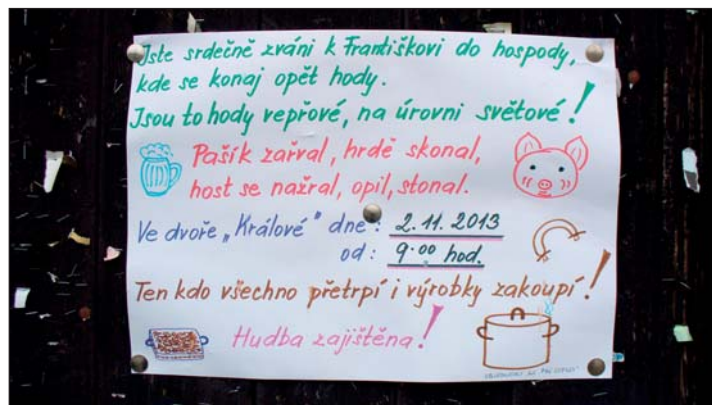 Jste srdečně zváni k Františkovi do hospody,
kde se konaj opět hody.
Jsou to hody vepřové, na úrovni světové!
Pašík zařval, hrdě skonal,
host se nažral, opil, stonal.
Ve dvoře „Králové" dne: 2.11.2013
od: 9.00 hod.
Ten kdo všechno přetrpí i výrobky zakoupí!
Hudba zajištěna!